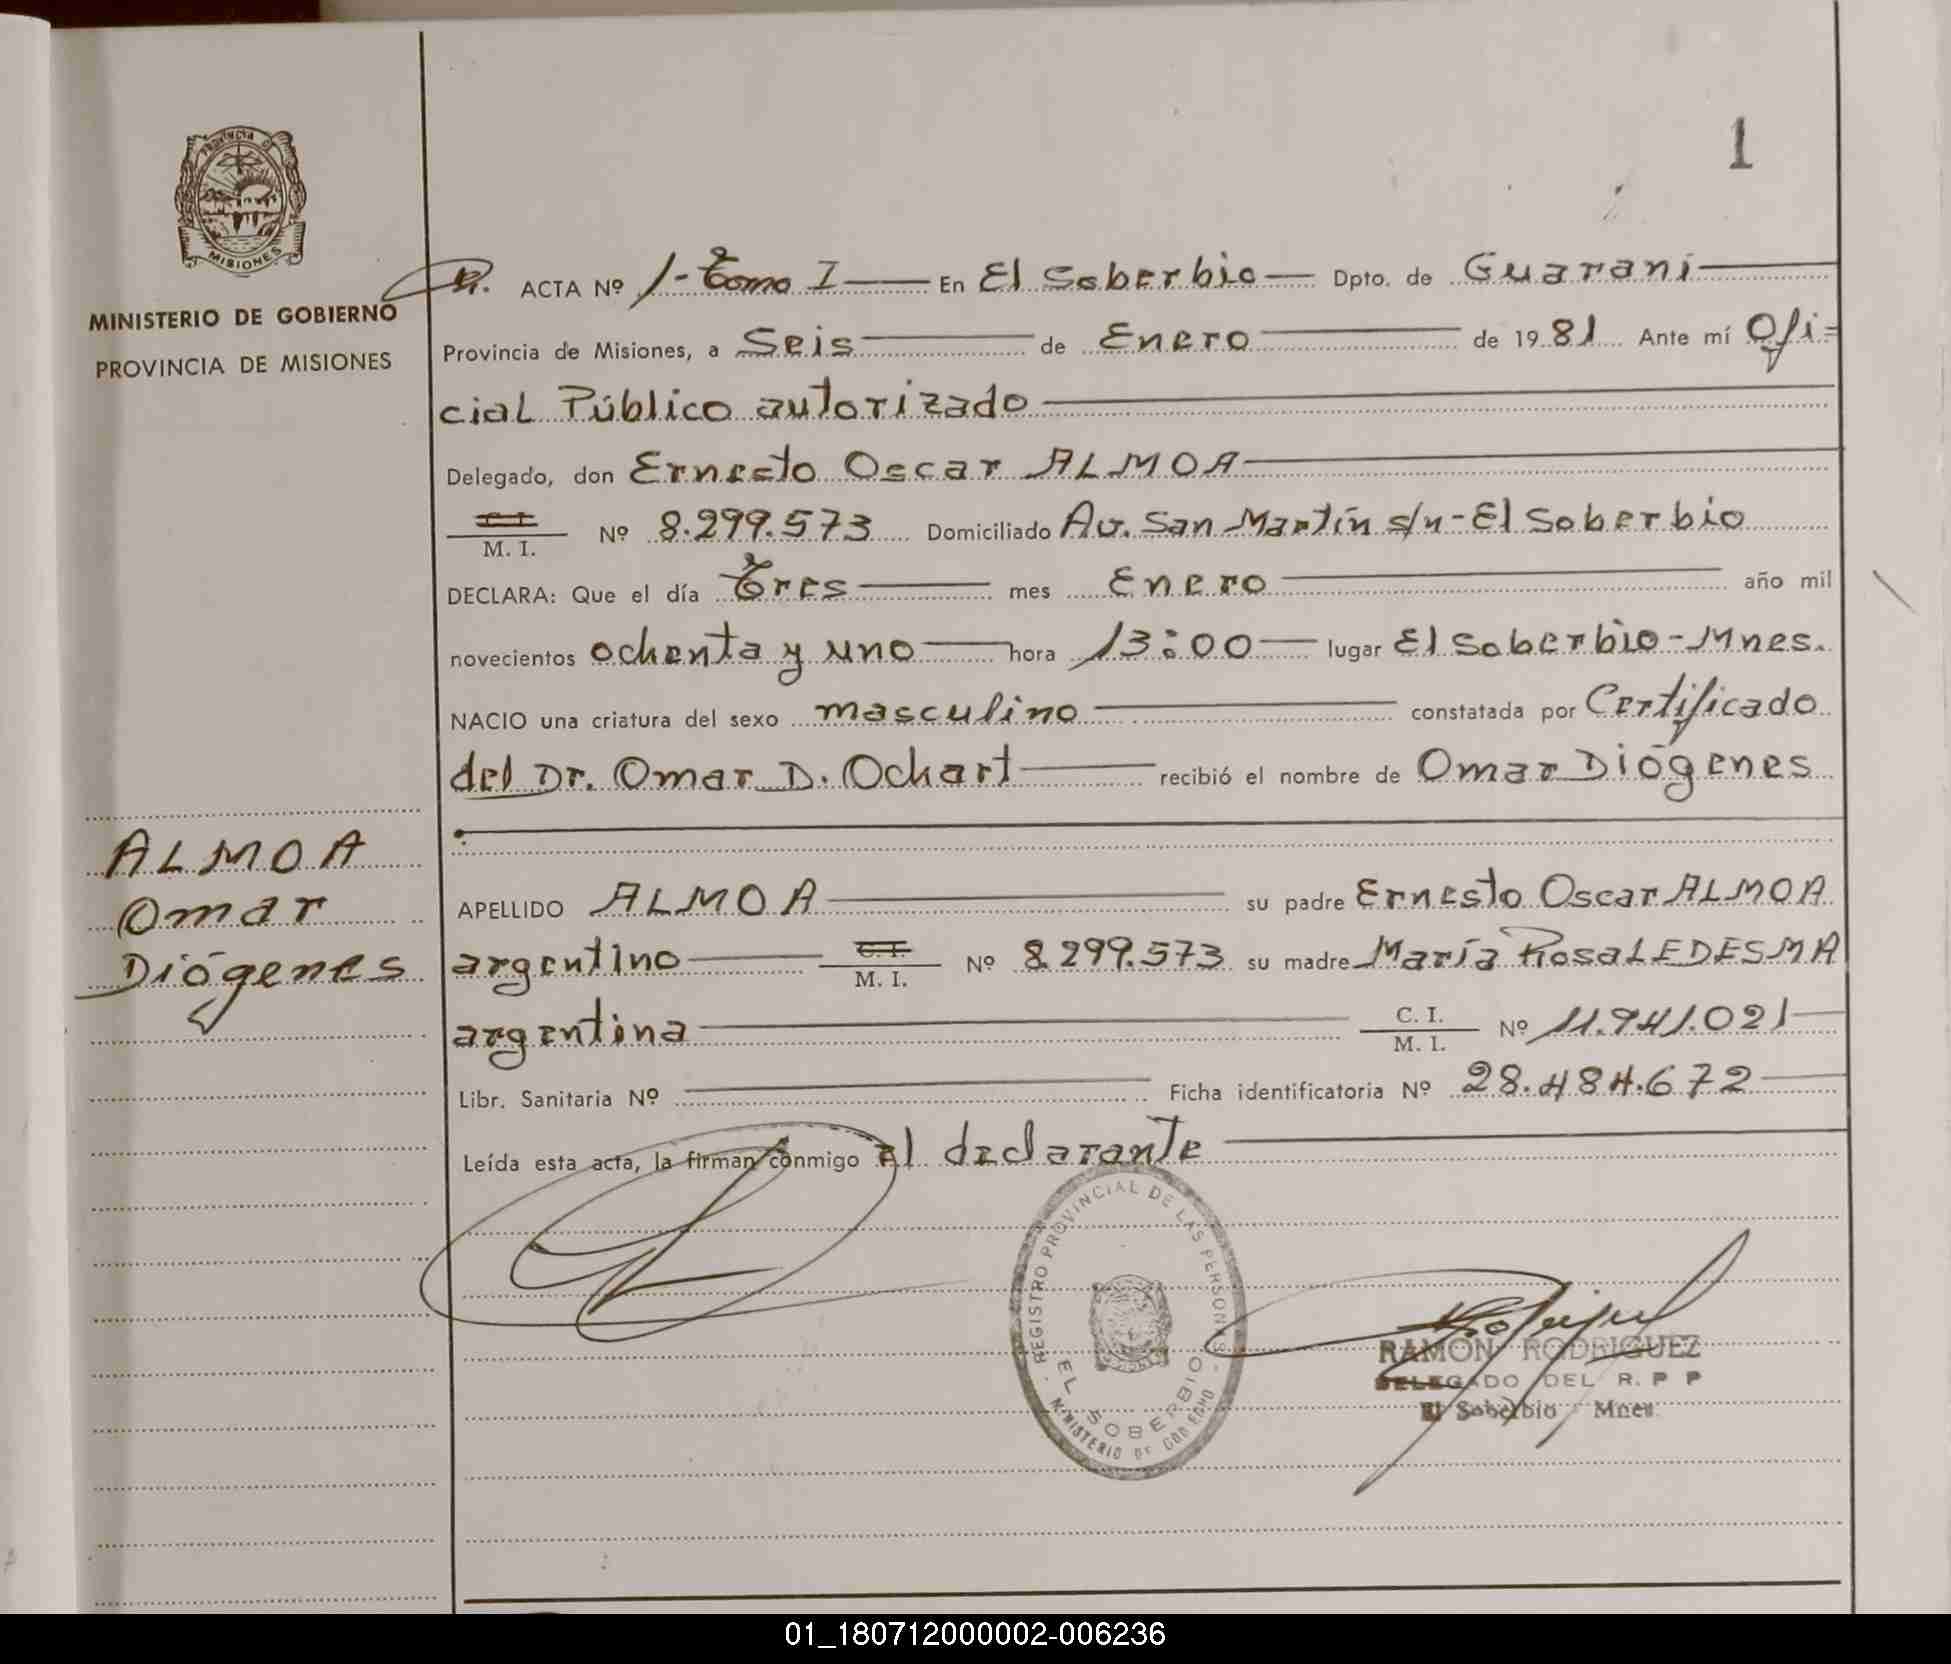 1
PROVINCIA DE
MISIONES
MINISTERIO DE GOBIERNO
PROVINCIA DE MISIONES
ACTA Nº 1- Tomo I En El Soberbio Dpto. de Guaraní
Provincia de Misiones, a Seis de Enero de 1981 Ante mí Ofi=
cial Público autorizado
Delegado, don Ernesto Oscar ALMOA
C. I.
M. I. Nº 8.299.573 Domiciliado Av. San Martín s/n - El Soberbio
DECLARA: Que el día Tres mes Enero año mil
novecientos ochenta y uno hora 13:00 lugar El Soberbio - Mnes.
NACIO una criatura del sexo masculino constatada por Certificado
del Dr. Omar D. Ochart recibió el nombre de Omar Diógenes
ALMOA
Omar
Diógenes
APELLIDO ALMOA su padre Ernesto Oscar ALMOA
argentino C. I.
M. I. Nº 8.299.573 su madre María Rosa LEDESMA
argentina C. I.
M. I. Nº 11.941.021
Libr. Sanitaria Nº Ficha identificatoria Nº 28.484.672
Leída esta acta, la firman conmigo el declarante
REGISTRO PROVINCIAL DE LAS PERSONAS
EL SOBERBIO
MINISTERIO DE GOBIERNO
RAMON RODRIGUEZ
DELEGADO DEL R. P P
El Soberbio - Mnes.
01_180712000002-006236